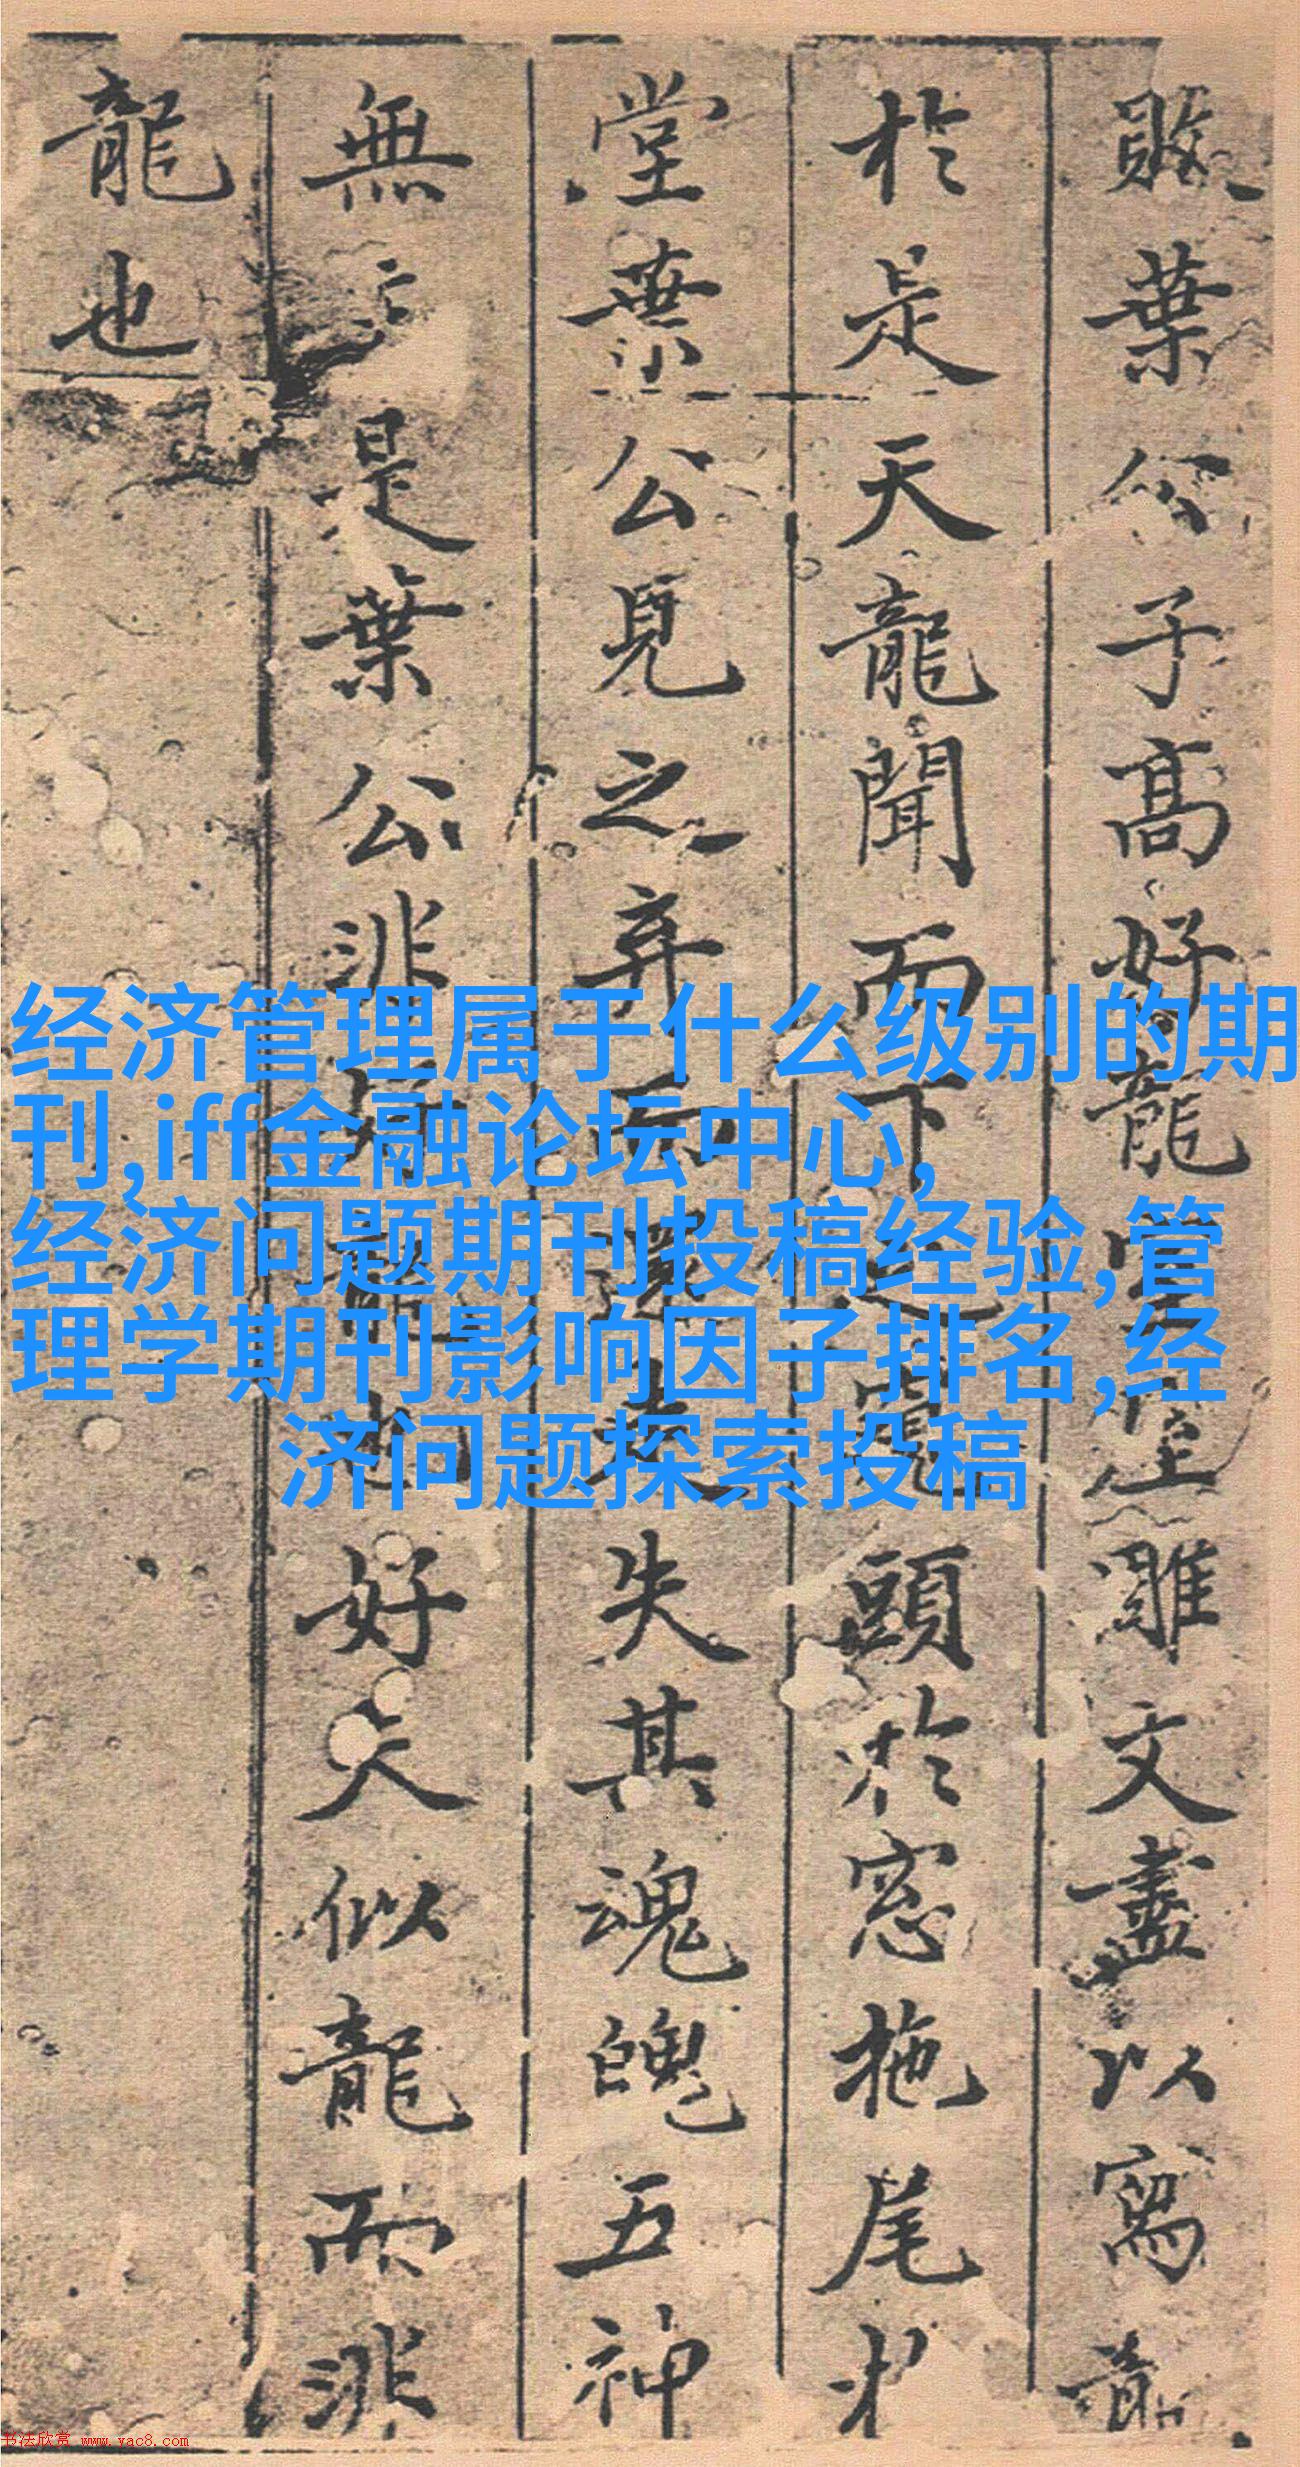 敗葉公子高好龍雕文盡以寫龍
於是天龍聞而下之窺頭於窓拖尾
堂葉公見之弃而還走失其魂魄五神
無主是葉公非好龍也好夫似龍而非
龍也
经济管理属于什么级别的期
刊,iff金融论坛中心,
经济问题期刊投稿经验,管
理学期刊影响因子排名,经
济问题探索投稿
书法欣赏 www.yac8.com